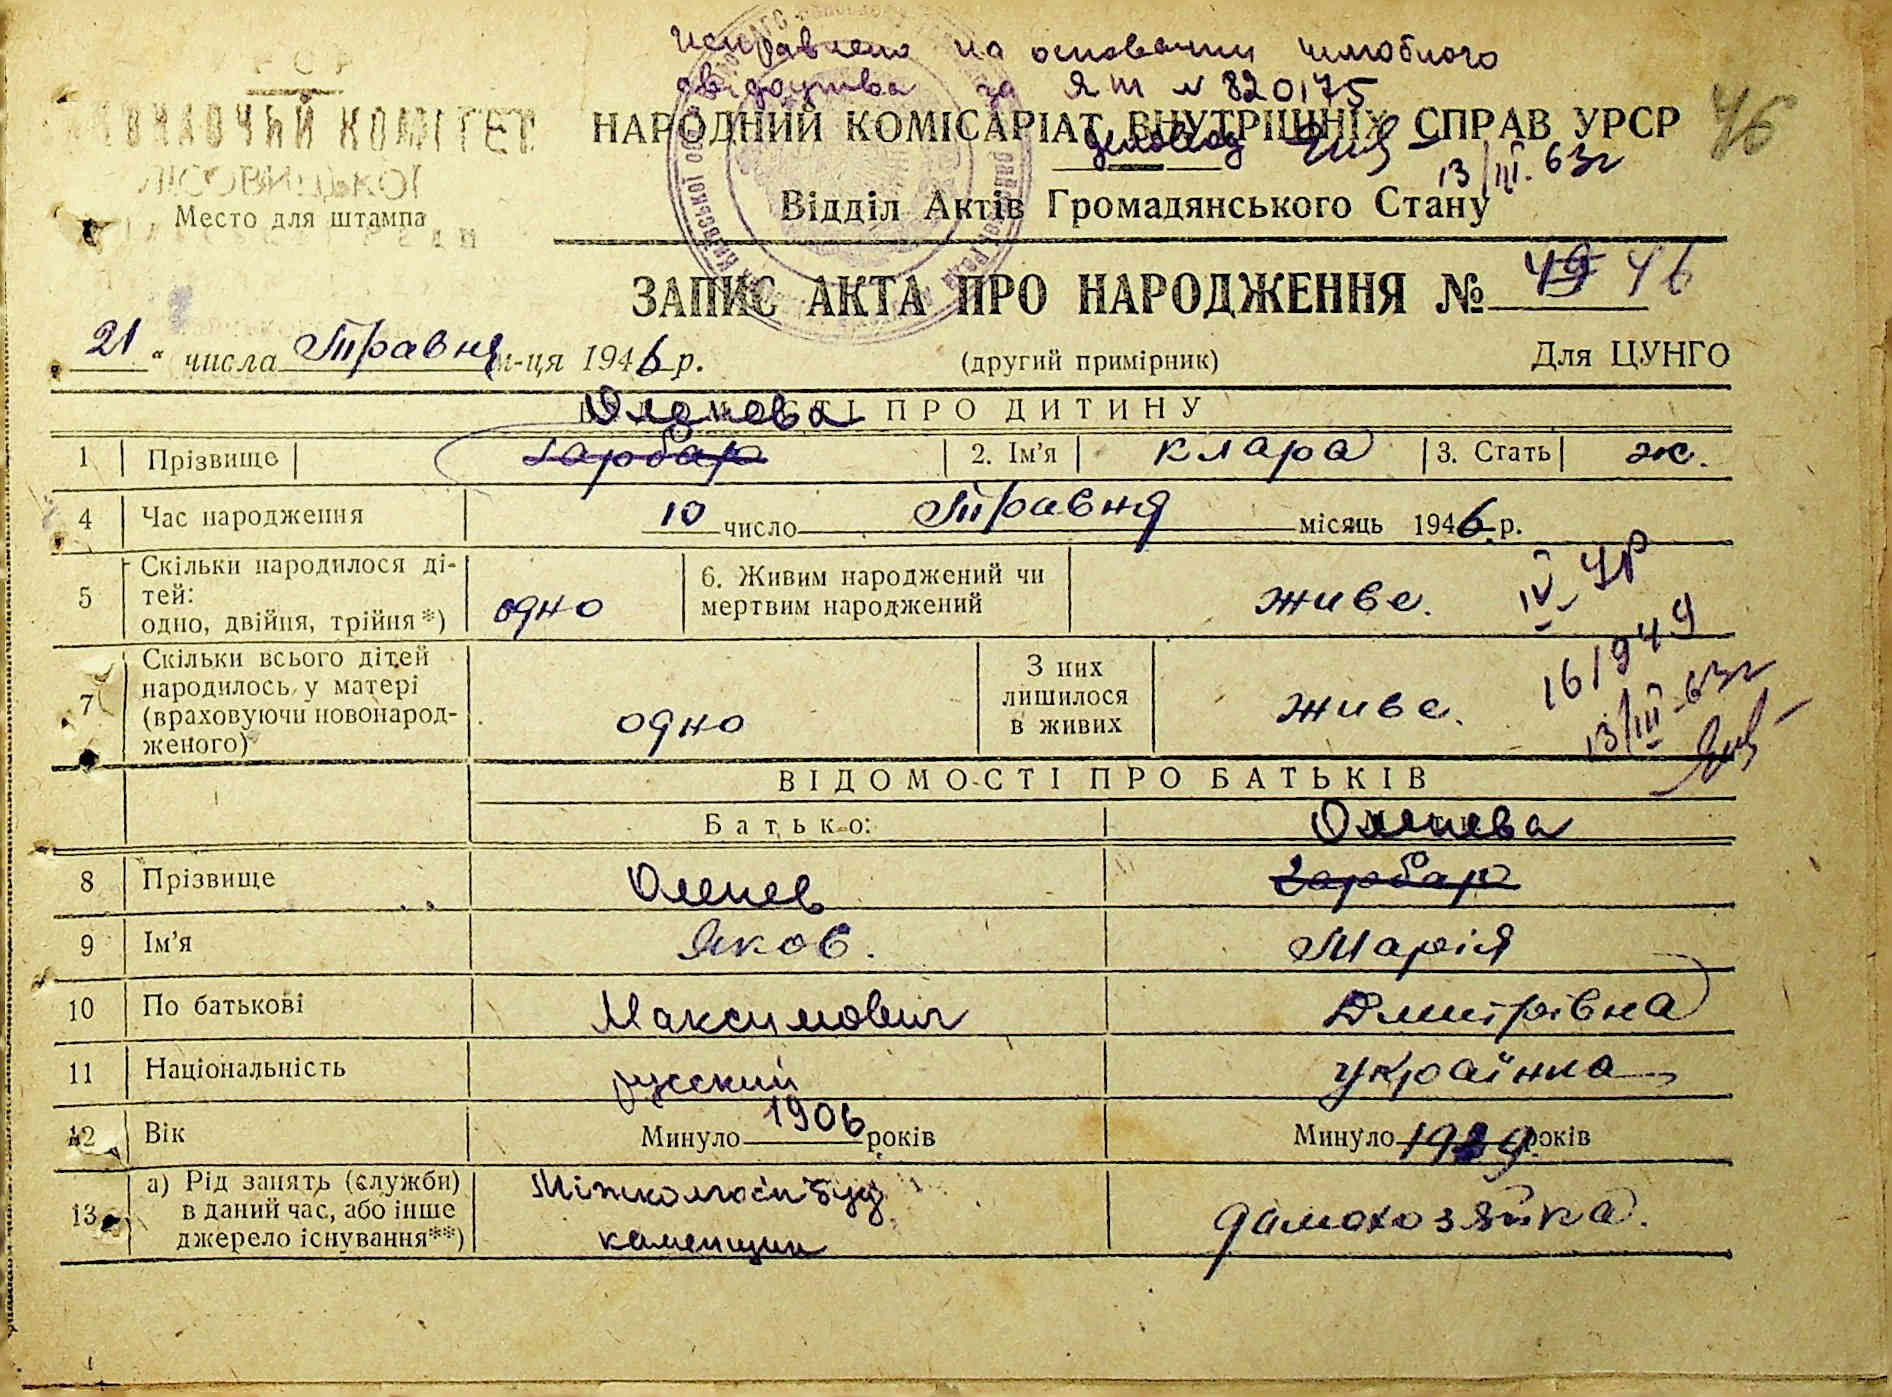 исправлено на основании шлюбного
свідоцтва за ЯШ № 820175
НАРОДНИЙ КОМІСАРІАТ ВНУТРІШНІХ СПРАВ УРСР
46
деловод
13/III. 63г
ВИКОНАВЧЬИЙ КОМІТЕТ
Место для штампа
Відділ Актів Громадянського Стану
ЗАПИС АКТА ПРО НАРОДЖЕННЯ № 49 46
21 " числа Травня м-ця 1946 р. (другий примірник) Для ЦУНГО
ВІДОМОСТІ ПРО ДИТИНУ
Оленева
1 Прізвище Гарбар 2. Ім'я Клара 3. Стать ж.
4 Час народження 10 число Травня місяць 1946 р.
5 Скільки народилося ді-
тей:
одно, двійня, трійня*) одно 6. Живим народжений чи
мертвим народжений живе.
IV-УР
161949
13/III-63г
7 Скільки всього дітей
народилось у матері
(враховуючи новонарод-
женого) одно З них
лишилося
в живих живе.
ВІДОМОСТІ ПРО БАТЬКІВ
Батько: Оленева
8 Прізвище Оленев Гарбар
9 Ім'я Яков. Марія
10 По батькові Максимович Дмитрівна
11 Національність русский українка
12 Вік Минуло 1906 років Минуло 1929 років
13 а) Рід занять (служби)
в даний час, або інше
джерело існування**) Міжколгоспбуд
каменщик домохозяйка.